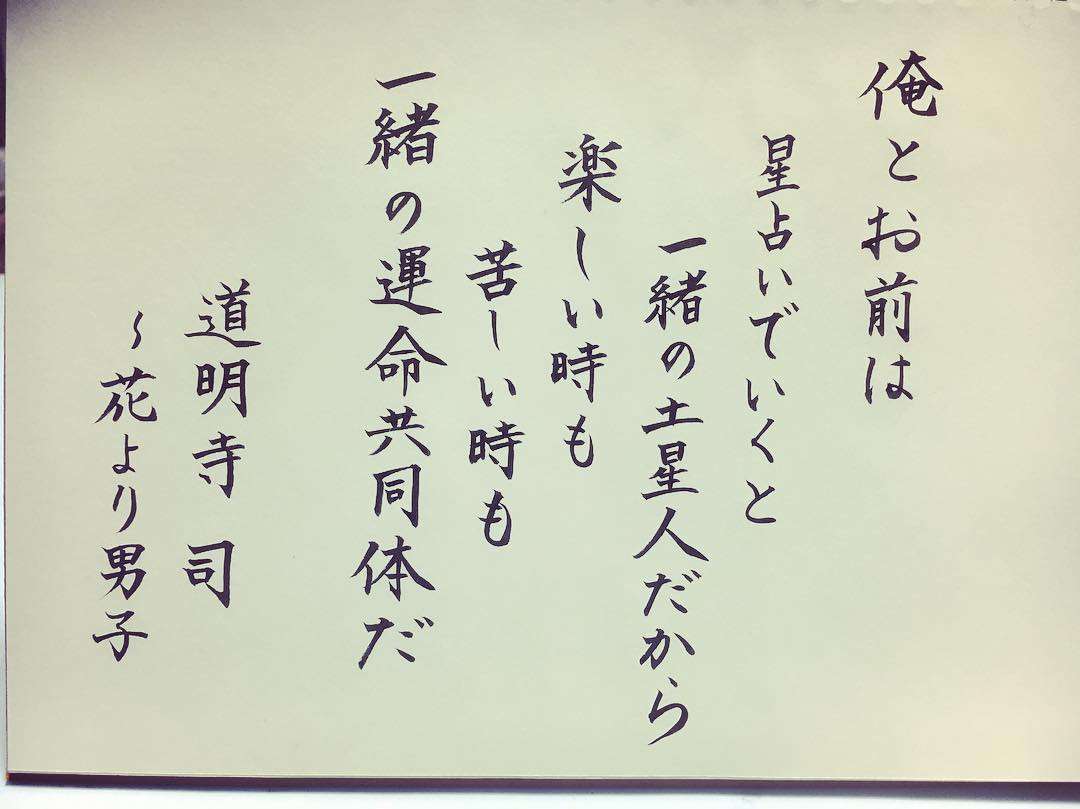 俺とお前は
星占いでいくと
一緒の土星人だから
楽しい時も
苦しい時も
一緒の運命共同体だ
道明寺 司
～花より男子